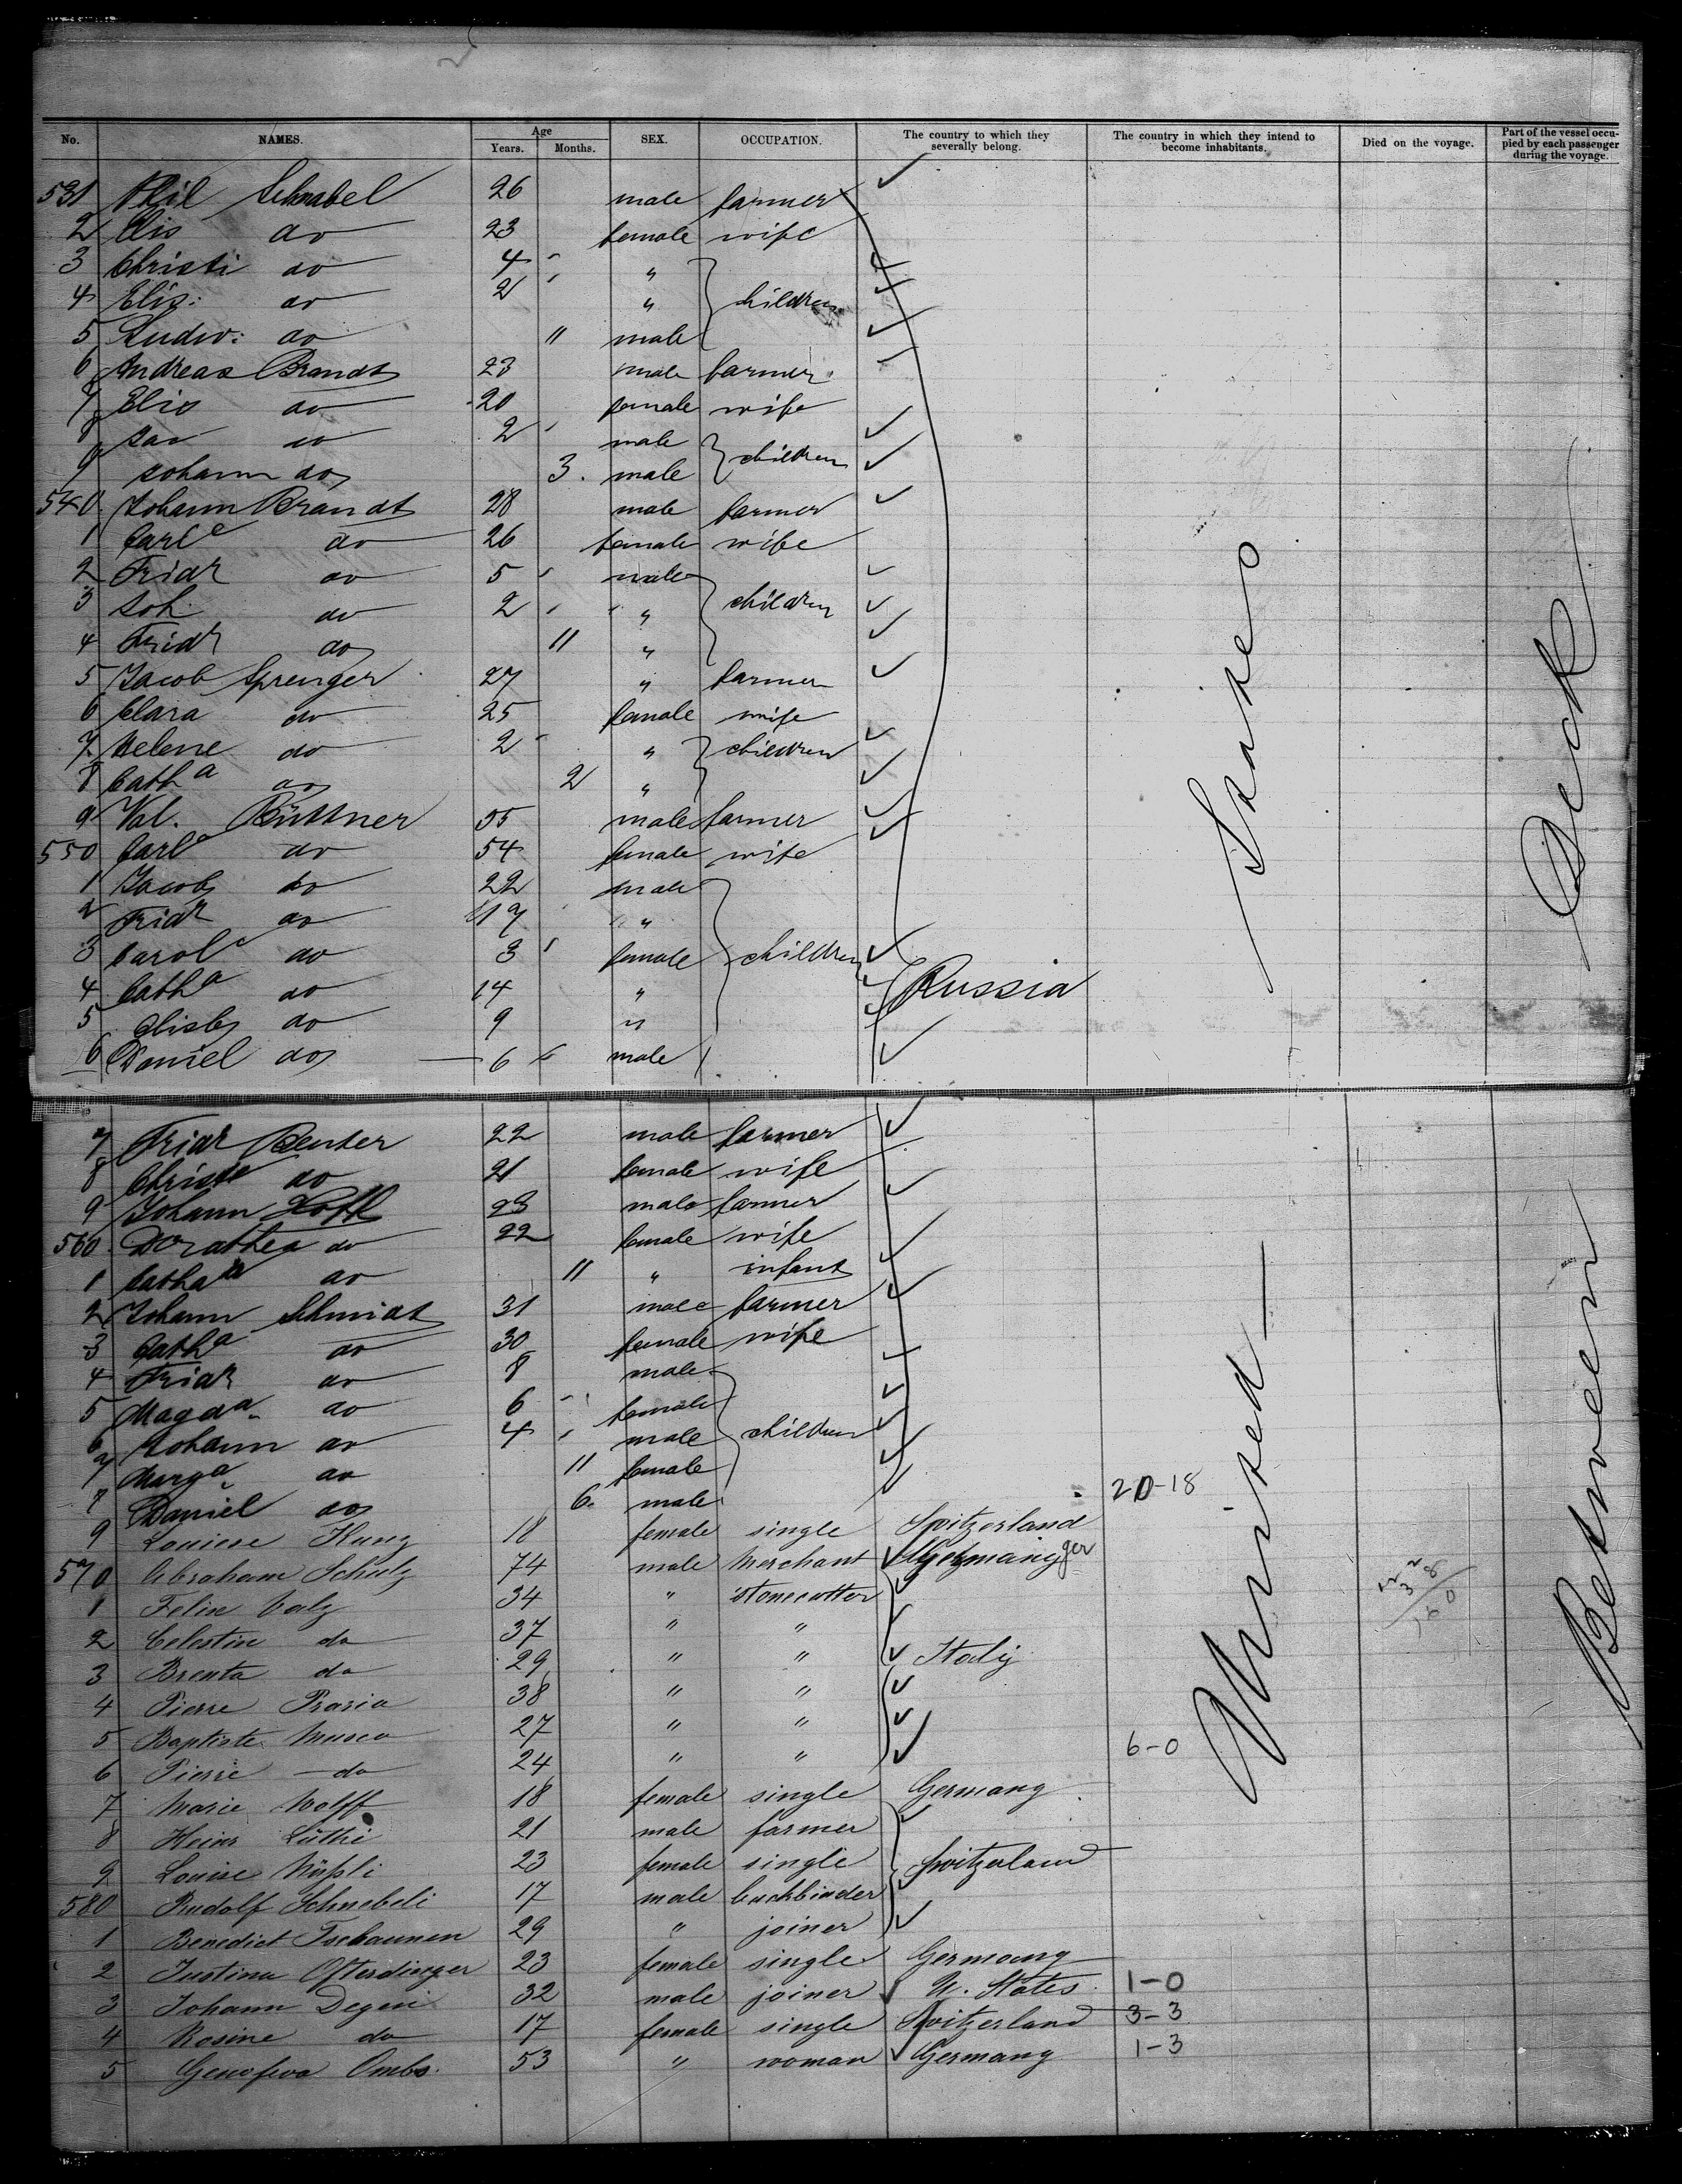 No. NAMES. Age Years. Months. SEX. OCCUPATION. The country to which they severally belong. The country in which they intend to become inhabitants. Died on the voyage. Part of the vessel occupied by each passenger during the voyage.
531 Phil Schnabel 26 male farmer
2 Elis do 23 female wife
3 Christi do 4 "
4 Elis: do 2 " children
5 Ludw: do 11 male
6 Andreas Brandt 23 male farmer
7 Elis do 20 female wife
8 do 2 male
9 Johann do 3 male children
540 Johann Brandt 28 male farmer
1 Carle do 26 female wife
2 Fridr do 5 male
3 Joh. do 2 " children
4 Fridr do 11 "
5 Jacob Sprenger 27 " farmer
6 Clara do 25 female wife
7 Helene do 2 " children
8 Catha do 2 "
9 Val. Büttner 55 male farmer
550 Carle do 54 female wife
1 Jacob do 22 male
2 Fridr do 17 "
3 Carole do 3 female children
4 Catha do 14 " Russia
5 Elisb do 9 "
6 Daniel do 6 male
7 Fridr Reuter 22 male farmer
8 Christe do 21 female wife
9 Johann 23 male farmer
560 Dorathea do 22 female wife
1 Catha do 11 " infant
2 Johann Schmidt 31 male farmer
3 Catha do 30 female wife
4 Fridr do 8 male
5 Magda do 6 female
6 Johann do 4 male children
7 Marga do 11 female
8 Daniel do 6 male 20-18
9 Louiese Kunz 18 female single Switzerland
570 Abraham Schulz 74 male Merchant Germany ger
1 Felix Valz 34 " stonecutter
2 Celestin do 37 " "
3 Brenta do 29 " " Italy
4 Pierre Prasia 38 " "
5 Baptiste Musca 27 " "
6 Pierre do 24 " " 6-0
7 Marie Wolff 18 female single Germany
8 Heinr Lüthi 21 male farmer
9 Louise Nüssli 23 female single Switzerland
580 Rudolf Schnebeli 17 male buchbinder
1 Benedict Tschaunen 29 " joiner
2 Justina Ofterdinger 23 female single Germany
3 Johann Degeni 32 male joiner U. States 1-0
4 Rosine do 17 female single Switzerland 3-3
5 Genofeva Ombs. 53 " woman Germany 1-3
United States
Between Deck